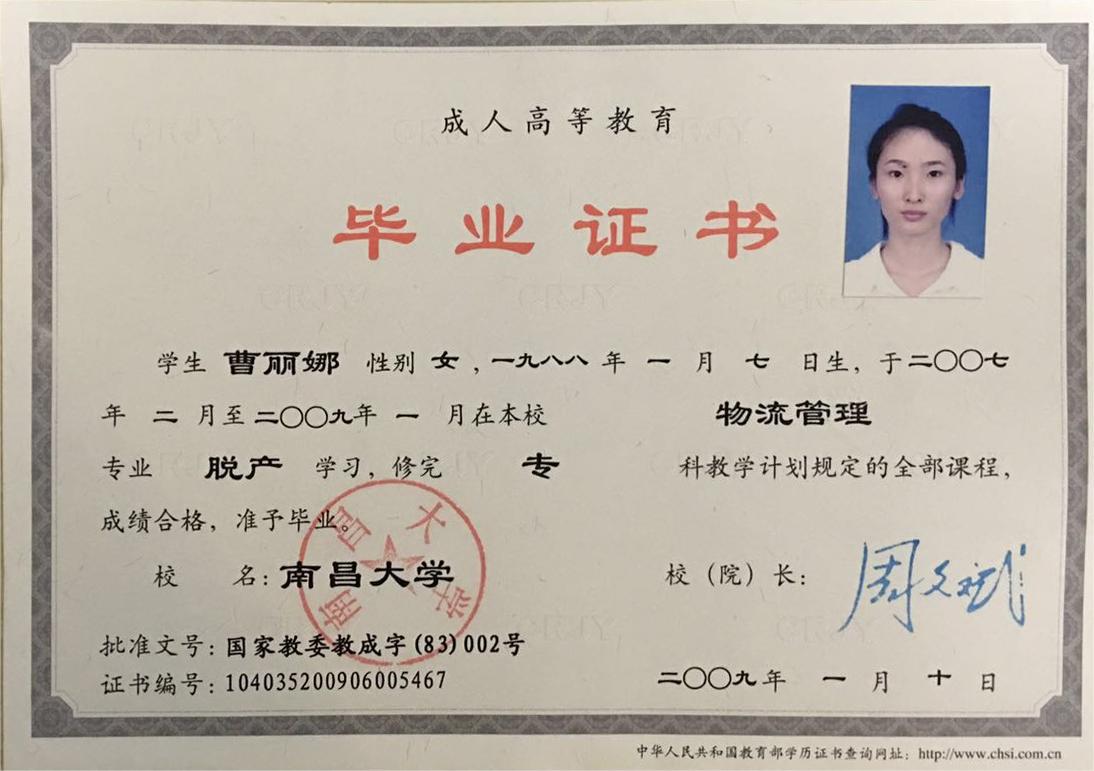 成人高等教育
毕业证书
学生 曹丽娜 性别 女 ，一九八八 年 一 月 七 日生，于二〇〇七
年 二 月至二〇〇九年 一 月在本校 物流管理
专业 脱产 学习，修完 专 科教学计划规定的全部课程，
成绩合格，准予毕业。
南昌大学
校 名：南昌大学 校（院）长： 周文斌
批准文号：国家教委教成字(83)002号
证书编号：104035200906005467 二〇〇九年 一 月 十 日
中华人民共和国教育部学历证书查询网址：http://www.chsi.com.cn